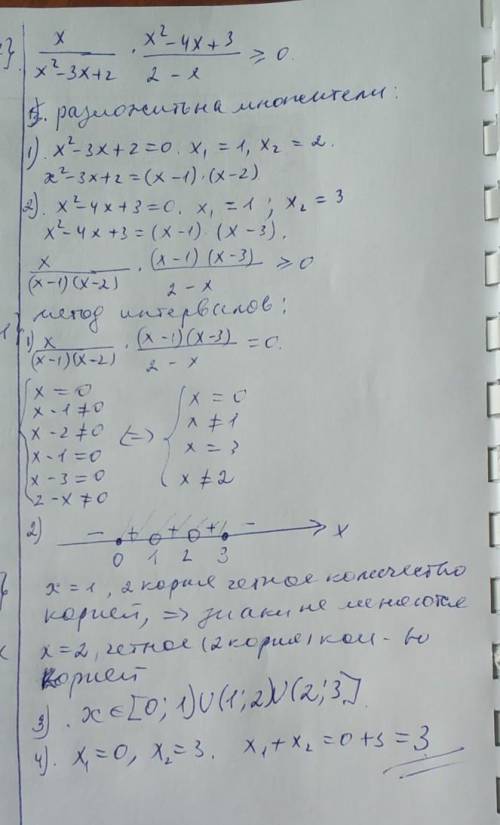 x/(x²-3x+2) · (x²-4x+3)/(2-x) ≥ 0.
разложить на множители:
1). x²-3x+2=0. x₁=1, x₂=2.
x²-3x+2=(x-1)·(x-2)
2). x²-4x+3=0. x₁=1; x₂=3
x²-4x+3=(x-1)·(x-3).
x/((x-1)(x-2)) · ((x-1)(x-3))/(2-x) ≥ 0
метод интервалов:
1) x/((x-1)(x-2)) · ((x-1)(x-3))/(2-x) = 0.
{ x=0
x-1≠0
x-2≠0
x-1=0
x-3=0
2-x≠0
<=> { x=0
x≠1
x=3
x≠2
2) - + + + - x
0 1 2 3
x=1, 2 корня четное количество
корней, => знаки не меняются
x=2, четное (2 корня) кол-во
корней
3). x∈[0;1)U(1;2)U(2;3].
4). x₁=0, x₂=3. x₁+x₂=0+3=3